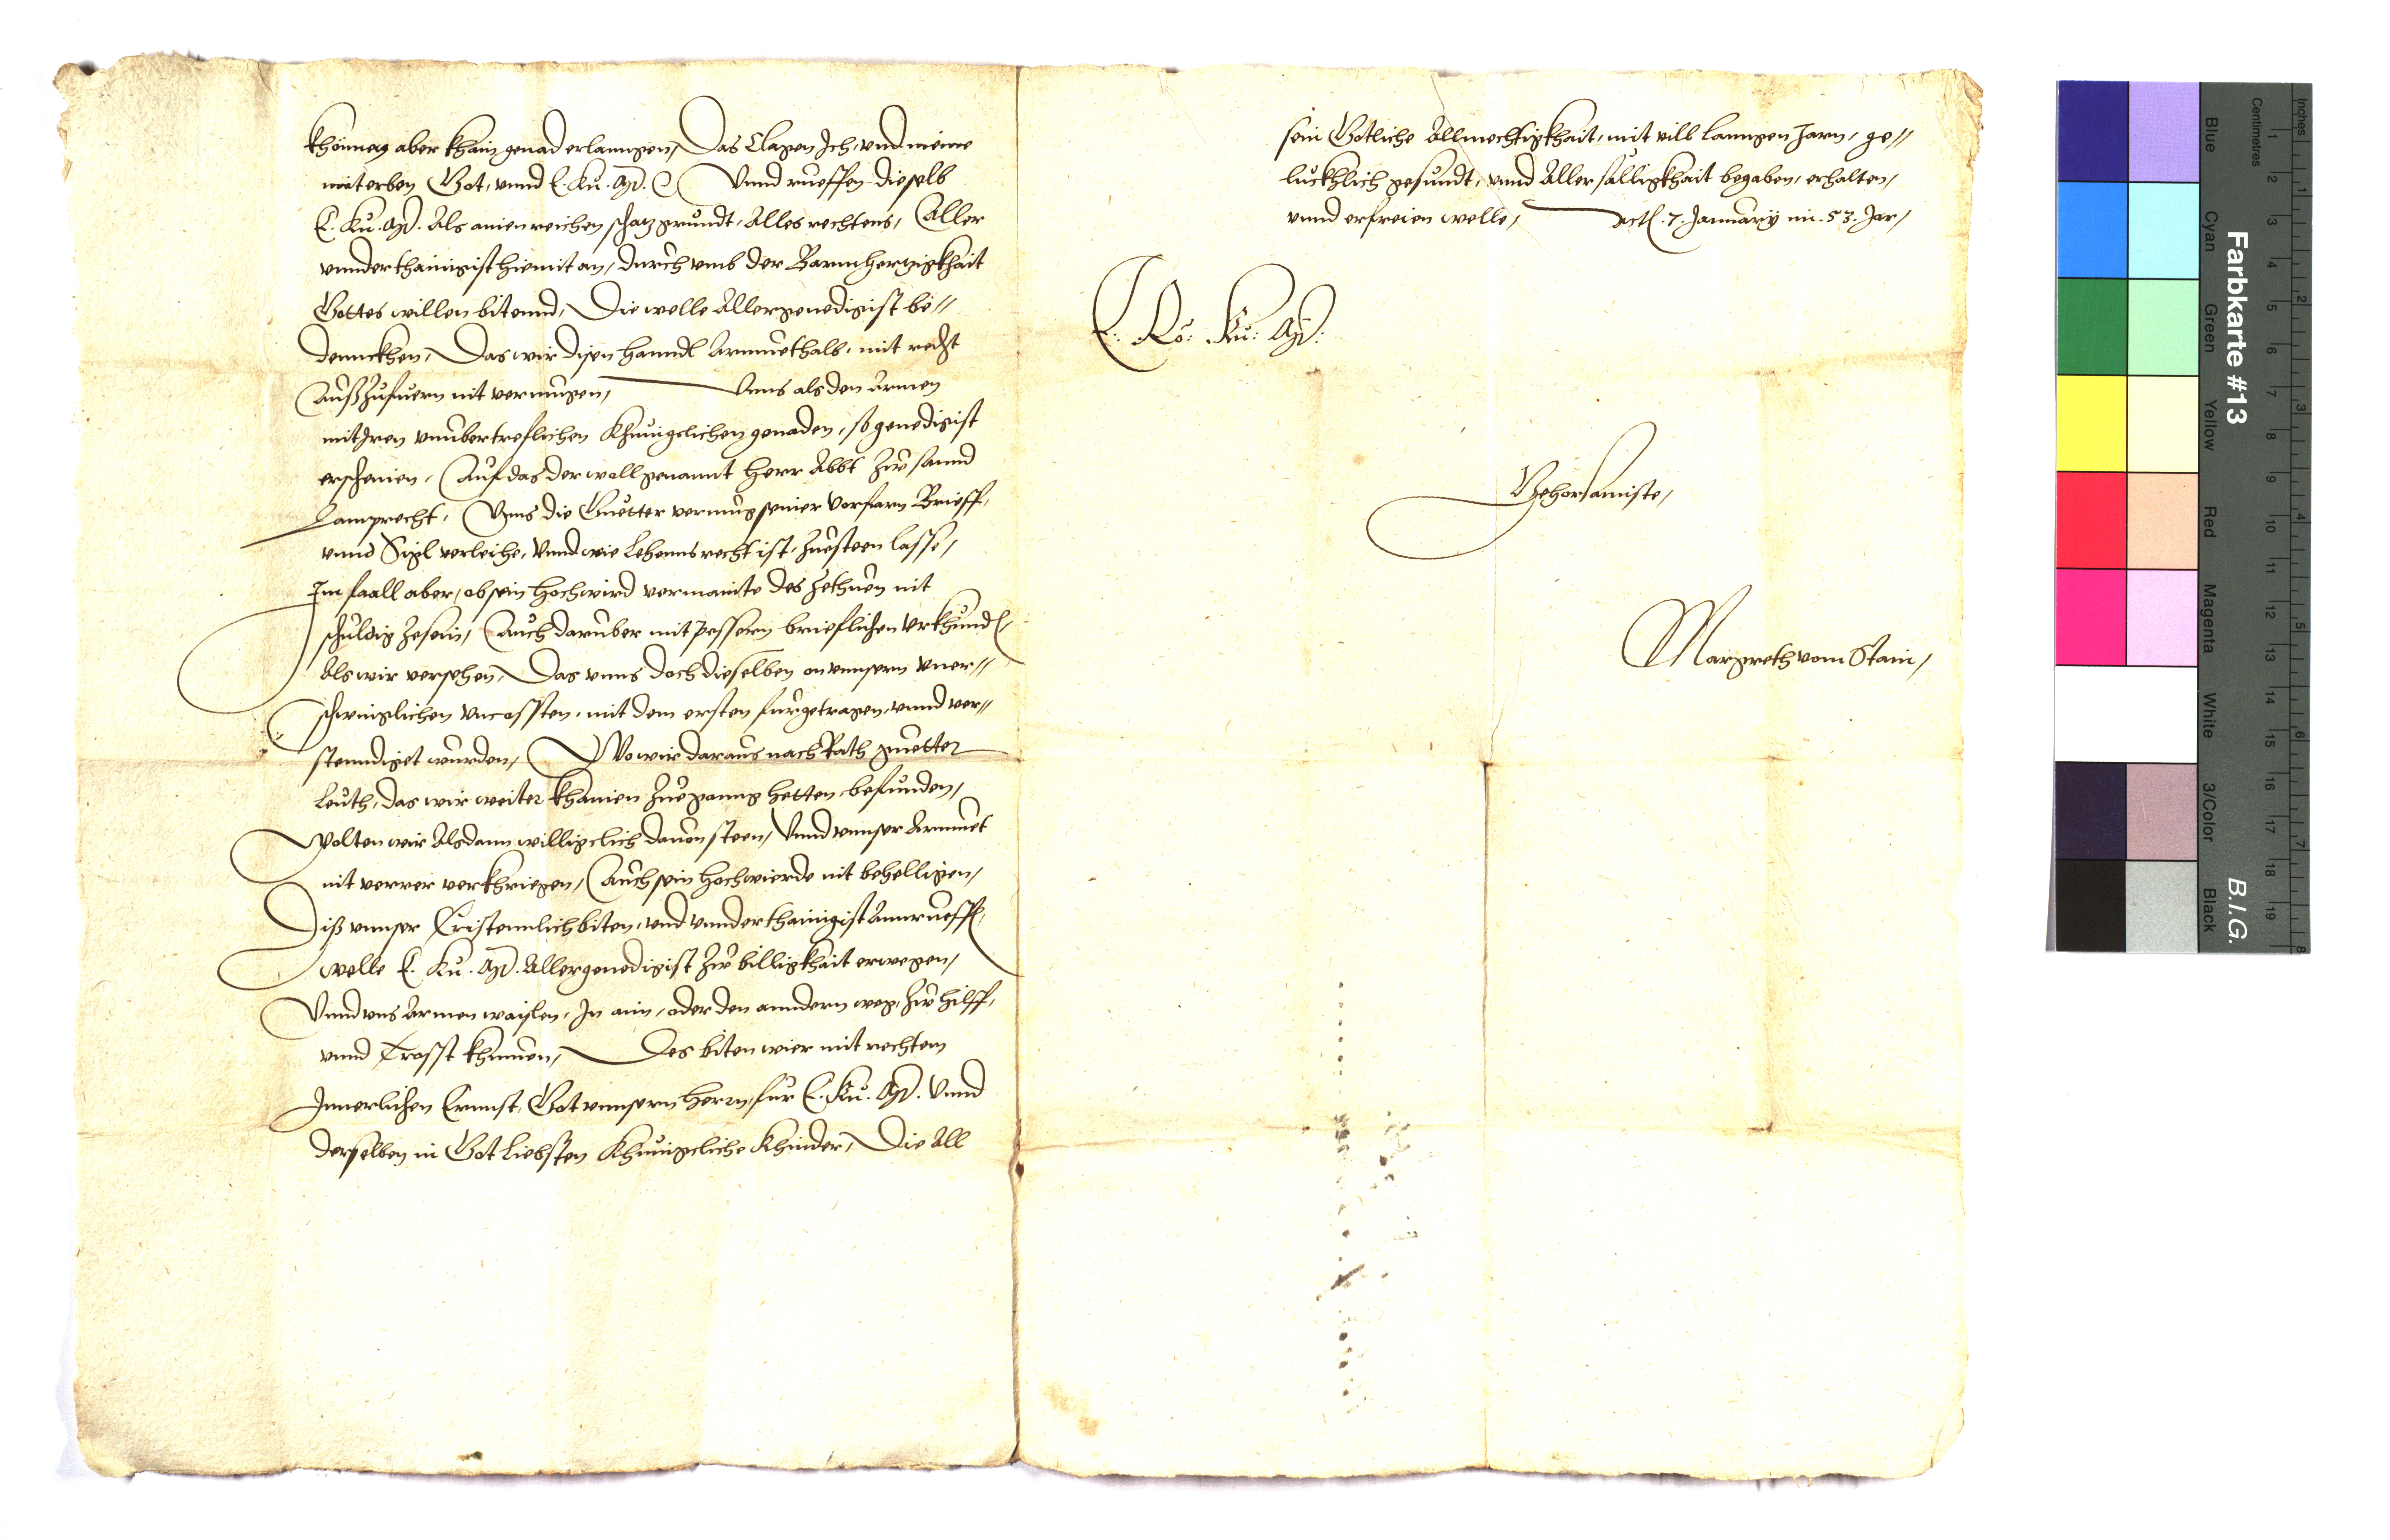 khönneg aber khain genad erlanngen, Das Clagen Ich, vnd meine
miterben Got, vnnd E. Ku. Mt. Vnnd rueffen dieselb
E. Ku. Mt. Als ainen reichen schatzgrundt, Alles rechtens, Aller
vnnderthainigist hiemit an, durch vmb der Barmhertzigkhait
Gottes willen bitennd, Die welle Allergenedigist be//
denckhen, Das wir disen hanndl Armuethalb, mit recht
Außzufuern nit vermugen, Vnns als den Armen
mit Iren vnubertreflichen Khunigclichen genaden, so genedigist
erscheinen, Auf das der wollgenannt herr Abbt zw sannd
Lamprecht, Vnns die Guetter vermug seiner vorfarn Brieff,
vnnd Sigl verleihe, Vnnd wie Lehennsrecht ist, zuesteen lasse,
Im faall aber, ob sein hochwird vermainte des zethuen nit
schuldig zesein, Auch daruber mit pessern brieflichen vrkhundt
Als wir versehen, Das vnns doch dieselben on vnnsern vner//
schwinglichen vncossten, mit dem ersten furgetragen, vnnd ver//
stenndiget wurden, Wo wir daraus nach Rath guetter
Leuth, das wir weiter khainen zueganng hetten befunden,
Wolten wir Alsdann willigclich dauon steen, Vnnd vnnser Armuet
nit verrer verkhriegen, Auch sein hochwierde nit behelligen,
Diß vnnser Cristennlich biten, vnd vnnderthainigist Annrueffen
welle E. Ku. Mt. Allergenedigist zw billigkhait erwegen,
Vnnd vns Armen waislen, In ain, oder den anndern weg, zw hilff,
vnnd Trosst khumen, Des biten wier mit rechtem
Innerlichen Ernnst, Got vnnsern herrn, fur E. Ku. Mt. Vnnd
derselben in Got Liebsten Khunigcliche Khinder, Die All
sein Gotliche Allmechtigkhait, mit vill lanngen Jarn, ge//
luckhlich gesundt, vnnd Aller sälligkhait begaben, erhalten,
vnnd erfreien welle, Actum 7. January im 53. Jar,
E. Rö: Ku: Mt:
Gehorsamiste,
Margreth vom Stain,
Farbkarte #13
B.I.G.
Blue
Cyan
Green
Yellow
Red
Magenta
White
3/Color
Black
Centimetres
Inches
1 2 3 4 5 6 7 8 9 10 11 12 13 14 15 16 17 18 19
1 2 3 4 5 6 7 8